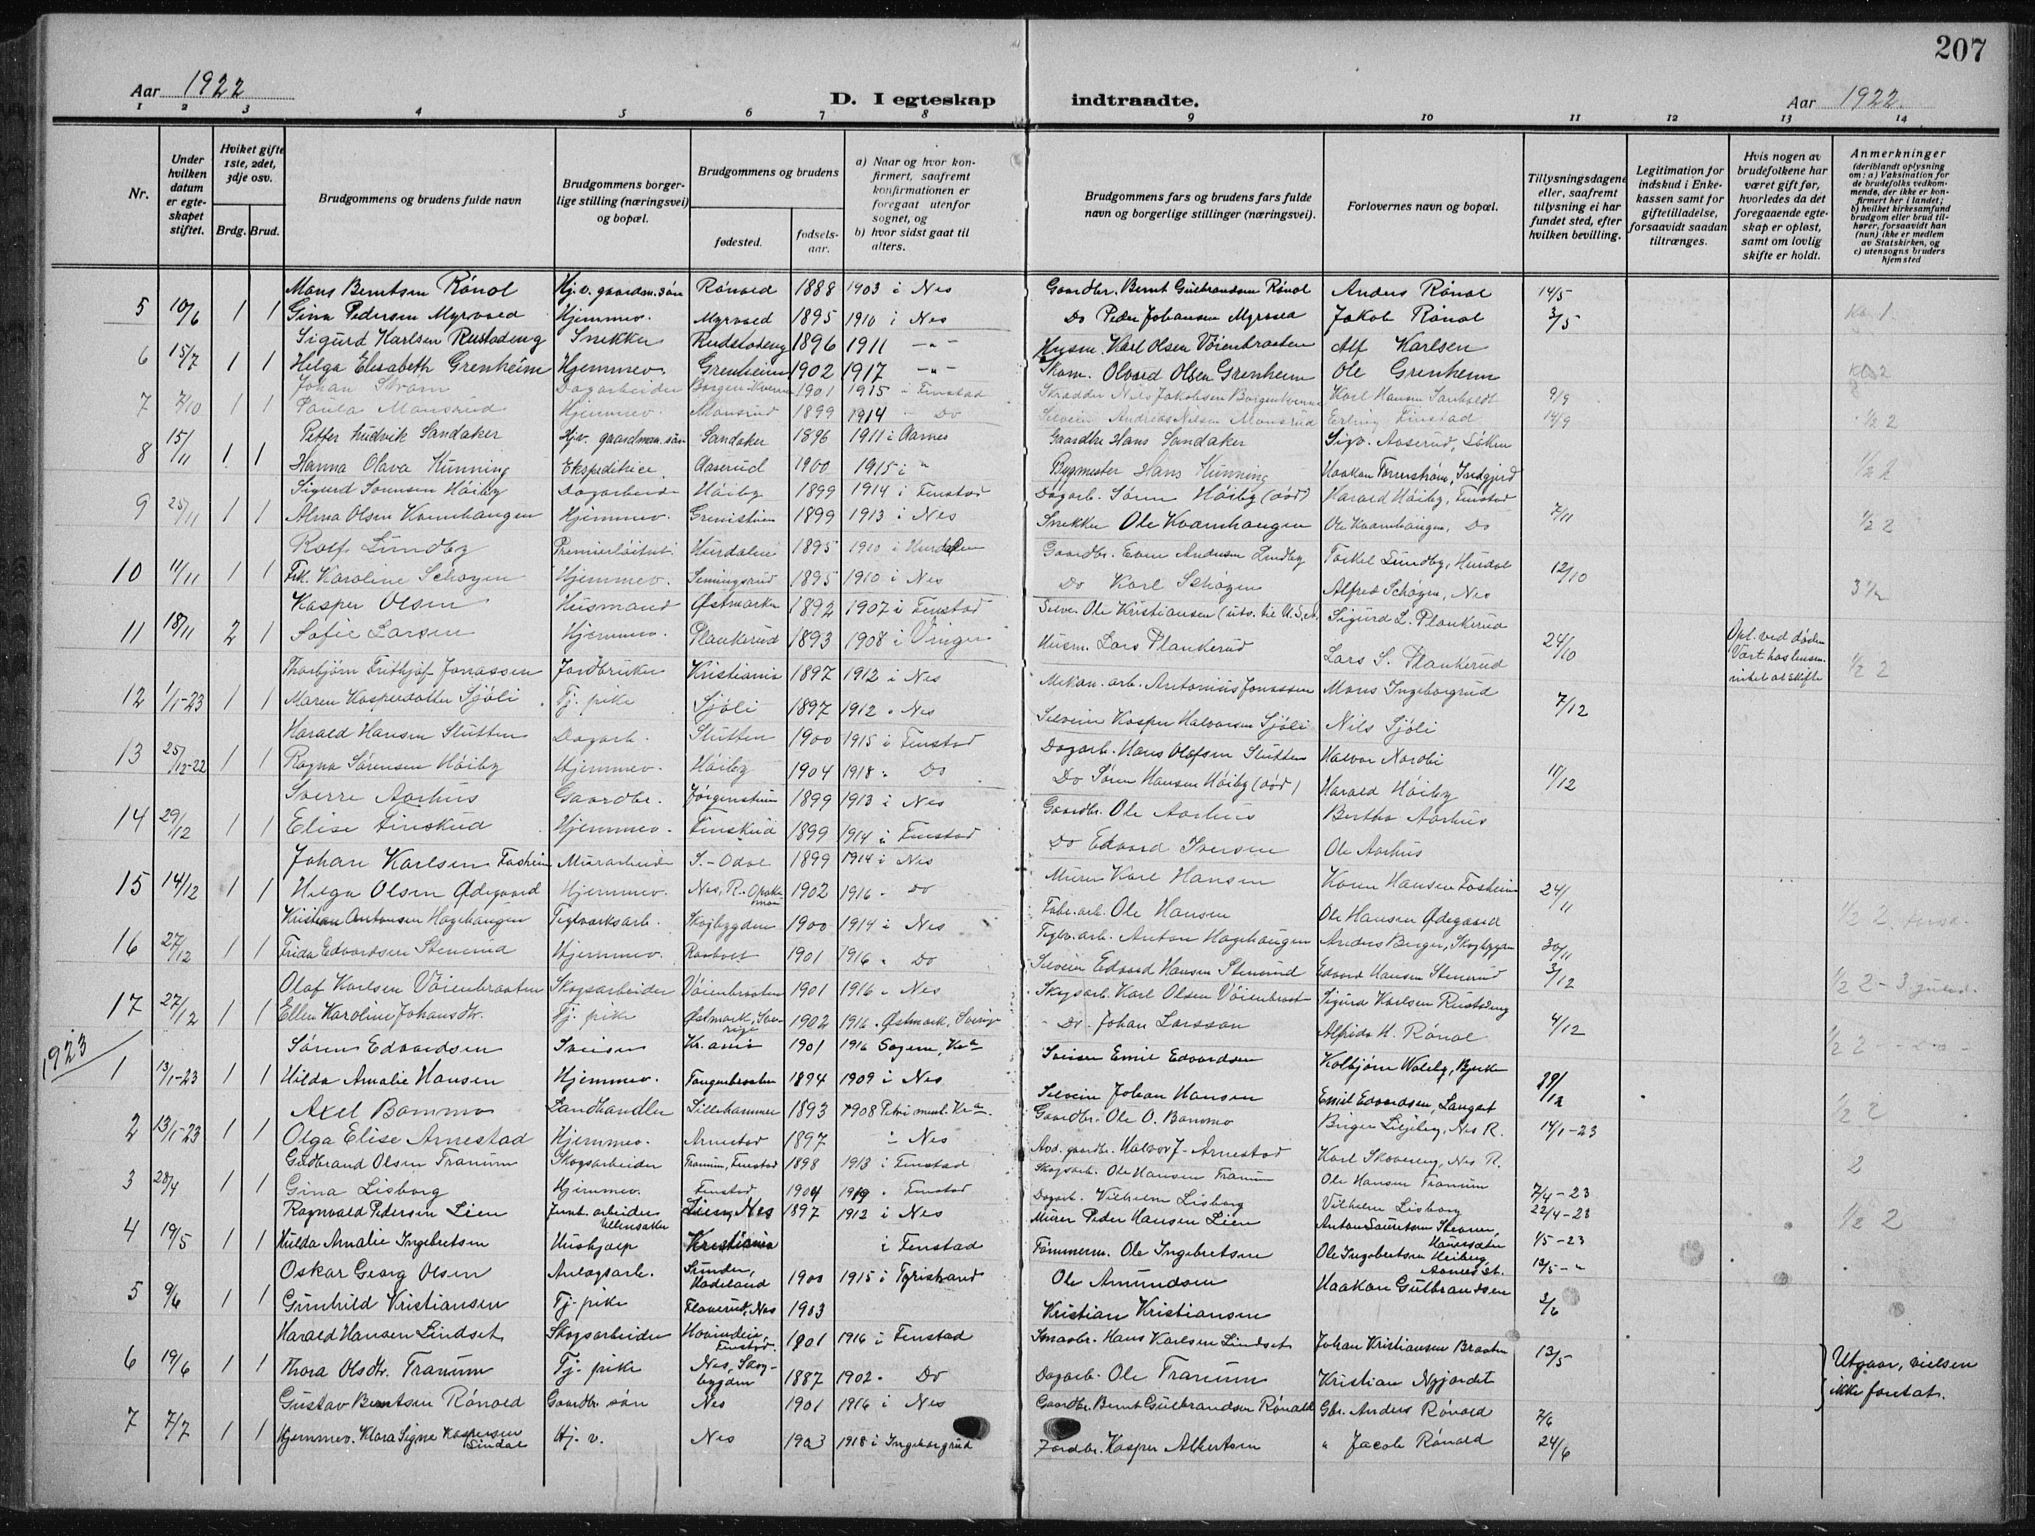 207
Aar 1922
D. I egteskap indtraadte.
Aar 1922.
1 2 3 4 5 6 7 8 9 10 11 12 13 14
Nr.
Under hvilken datum er egteskapet stiftet.
Hviket gifte 1ste, 2det, 3dje osv.
Brdg. Brud.
Brudgommens og brudens fulde navn
Brudgommens borgerlige stilling (næringsvei) og bopæl.
Brudgommens og brudens
fødested.
fødselsaar.
a) Naar og hvor konfirmert, saafremt konfirmationen er foregaat utenfor sognet, og
b) hvor sidst gaat til alters.
Brudgommens fars og brudens fars fulde navn og borgerlige stillinger (næringsvei).
Forlovernes navn og bopæl.
Tillysningsdagene eller, saafremt tillysning ei har fundet sted, efter hvilken bevilling.
Legitimation for indskud i Enkekassen samt for giftetilladelse, forsaavidt saadan tiltrænges.
Hvis nogen av brudefolkene har været gift før, hvorledes da det foregaaende egteskap er opløst, samt om lovlig skifte er holdt.
Anmerkninger
(deriblandt oplysning om: a) Vaksination for de brudefolks vedkommende, der ikke er konfirmert her i landet;
b) hvilket kirkesamfund brudgom eller brud tilhører, forsaavidt han (hun) ikke er medlem av Statskirken, og
c) utensogns bruders hjemsted
Mons Berntsen Rónol Hj.v. gaardm. søn Rónold 1888 1903 i Nes Gaardbr. Bernt Gulbrandsen Rónol Anders Rónol 14/5
5 10/6 1 1 Gina Pedersen Myrvold Hjemmev. Myrvold 1895 1910 i Nes Do Peder Johansen Myrvold Jakob Rónol 3/5
Sigurd Karlsen Rustadeng Snekker Rudstadeng 1896 1911 -"- Husm. Karl Olsen Vöienbraaten Alf Karlsen
6 15/7 1 1 Helga Elisabeth Grenheim Hjemmev. Grenheim 1902 1917 -"- Skom. Olvard Olsen Grenheim Ole Grenheim
Johan Strøm Dagarbeider Borgen Kvern 1901 1915 i Fenstad Skrædder Nils Jakobsen Borgenkvern Karl Hansen Sanholdt 9/9
7 7/10 1 1 Paula Monsrud Hjemmev. Monsrud 1899 1914 " Do Selveier Andreas Nilsen Monsrud Erling Finstad 14/9 1/2 2
Petter Ludvik Sandaker Hjv. gaardman. søn Sandaker 1896 1911 i Aarnes Gaardbr Hans Sandaker Sigv. Aaserud, Löken
8 15/11 1 1 Hanna Olava Kunning Ekspeditrice Aaserud 1900 1915 i " Bygmester Hans Kunning Haakon Forenstrøm, 1/2 2
Sigurd Sørensen Höiby Dagarbeide Höiby 1899 1914 i Fenstad Dagarb. Søren Höiby (död) Harald Höiby, Fenstad
9 25/11 1 1 Alma Olsen Kvernhaugen Hjemmev. 1899 1913 i Nes Snekker Ole Kvarnhaugen Ole Kvarnhaugen, Do 7/11 1/2 2
Rolf Lundby Premierløitnt. Hurdalen 1895 1910 i Hurdalen Gaardbr. Even Andersen Lundby Torkel Lundby, Hurdal
10 11/11 1 1 Frk. Karoline Schøyen Hjemmev. Semingsrud 1895 1910 i Nes Do Karl Schøyen Alfred Schøyen, Nes 12/10
Kasper Olsen Husmand Östmarken 1892 1907 i Fenstad Selve. Ole Kristiansen (utv. til U.S.A. Sigurd L. Plankerud
11 18/11 2 1 Sofie Larsen Hjemmev. Plankerud 1893 1908 i Vinger Husm. Lars Plankerud Lars S. Plankerud 24/10 Opl. ved døden 1/2 2
Thorbjørn Frithjof Jonassen Jordbruker Kristiania 1897 1912 i Nes Mekan. arb. Antonius Jonassen Mons Ingeborgrud
12 1/1-23 1 1 Maren Kaspersdotter Sjöli Tj. pike Sjöli 1897 1912 " Nes Selveier Kasper Halvorsen Sjöli Nils Sjöli 7/12
Harald Hansen Slutten Dagarb. Slutten 1900 1915 i Fenstad Dagarb. Hans Olafsen Slutten Halvor Nordbi
13 25/12-22 1 1 Ragna Sørensen Höiby Hjemmev. Höiby 1904 1918 " Do Do Søren Hansen Höiby (död) Harald Höiby 11/12
Sverre Aarhus Gaardbr. Jørgenstuen 1899 1913 i Nes Gaardbr. Ole Aarhus Bertha Aarhus
14 29/12 1 1 Elise Finskud Hjemmev. Finskud 1899 1914 i Fenstad Do Edvard Iversen Ole Aarhus
Johan Karlsen Fosheim Murarbeid S.-Odal 1899 1914 i Nes Murer Karl Hansen Karen Hansen Fosheim
15 14/12 1 1 Helga Olsen Ødegaard Hjemmev. Nes, R. 1902 1916 " Do Fabr.arb. Ole Hansen Ole Hansen Ødegaard 24/11
Kristian Antonsen Hagehaugen Teglverksarb. Skogbygden 1900 1914 i Nes Teglv. arb. Anton Hagehaugen Anders Berger, Skogbygden 30/11
16 27/12 1 1 Frida Edvardsen Stenerud Hjemmev. Raaholt 1901 1916 " Do Selveier Edvard Hansen Stenerud Edvard Hansen Stenerud 3/12
Olaf Karlsen Vöienbraaten Skogsarbeider Vöienbraaten 1901 1916 " Nes Skogsarb. Karl Olsen Vöienbraat Sigurd Karlsen Rustadeng
17 27/12 1 1 Ellen Karoline Johansdtr. Tj. pike Östmark, Sverige 1902 1916 " Östmark, Sverige Do. Johan Larsson Alfrida H. Rónol 4/12
1923
Søren Edvardsen Svensen Kr.ania 1901 1916 Sagene, Kra Emil Edvardsen Kolbjørn Woleby, Bjerke
1 13/1-23 1 1 Hilda Amalie Hansen Hjemmev. Tangenbraaten 1894 1909 i Nes Selveier Johan Hansen Emil Edvardsen, Langset 29/12
Axel Bammo Landhandler Lillehammer 1893 1908 Petri menl. Kra. Gaardbr. Ole O. Bammo Birger Liejbey, Nes R.
2 13/1-23 1 1 Olga Elise Arnestad Hjemmev. Arnestad 1897 i Nes gaardbr. Halvor J. Arnestad Karl Skovereng, Nes R. 14/1-23
Gudbrand Olsen Tranum Skogsarbeider Tranum, Fenstad 1898 1913 i Fenstad Skogsarb. Ole Hansen Tranum Ole Hansen Tranum
3 28/4 1 1 Gina Lisborg Hjemmev. Fenstad 1904 1919 " Fenstad Dagarb. Vilhelm Lisborg Vilhelm Lisborg 7/4-23
Ragnvald Pedersen Lien Jernb. arbeider Ullensaker Lien, Nes 1897 1912 i Nes Murer Peder Hansen Lien Anton Lauritsen 22/4-23
4 19/5 1 1 Hilda Amalie Ingebretsen Hushjælp Kristiania i Fenstad Tømmerm. Ole Ingebretsen Ole Ingebretsen Heiberg 1/5-23
Oskar Georg Olsen Anlægsarb. Lunder, Hadeland 1900 1915 i Tyristrand Ole Amundsen Haakon Gulbrandsen 12/5-"
5 9/6 1 1 Gunhild Kristiansen Tj. pike Floverud, Nes 1903 Kristian Kristiansen 2/6
Harald Hansen Lindset Skogsarbeider Hovindeie, Fenstad. 1801 1916 i Fenstad Smaabr. Hans Karlsen Lindset Johan Kristiansen Braaten
6 19/6 1 1 Thora Olsdtr. Tranum Tj. pike Nes, Skogbygden 1887 1902 " Do Dagarb. Ole Tranum Kristian Nyjordet 13/5 Utgaar, vielsen ikke foretat.
Gustav Berntsen Rónold Gaardbr. søn Nes 1901 1916 i Nes Gaardbr. Bernt Gulbrandsen Rónold Gbr. Anders Rónold 7/6
7 7/7 1 1 Hjemmev. Klara Signe Kaspersen Lindal Hj. v. Nes 1903 1918 i Ingeborgrud Jordbr. Kasper Albertsen " Jacob Rónold 24/6